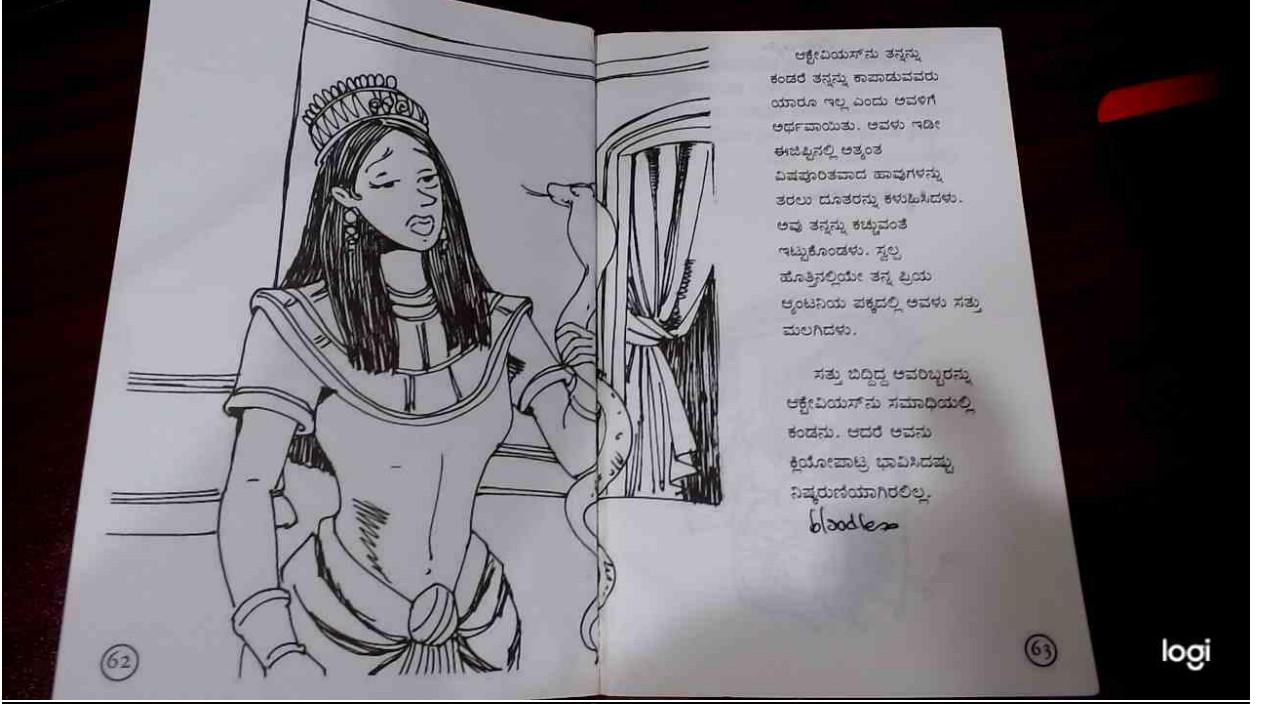 ಆಕ್ಟೇವಿಯಸ್‌ನು ತನ್ನನ್ನು
ಕಂಡರೆ ತನ್ನನ್ನು ಕಾಪಾಡುವವರು
ಯಾರೂ ಇಲ್ಲ ಎಂದು ಅವಳಿಗೆ
ಅರ್ಥವಾಯಿತು. ಅವಳು ಇಡೀ
ಈಜಿಪ್ಟಿನಲ್ಲಿ ಅತ್ಯಂತ
ವಿಷಪೂರಿತವಾದ ಹಾವುಗಳನ್ನು
ತರಲು ದೂತರನ್ನು ಕಳುಹಿಸಿದಳು.
ಅವು ತನ್ನನ್ನು ಕಚ್ಚುವಂತೆ
ಇಟ್ಟುಕೊಂಡಳು. ಸ್ವಲ್ಪ
ಹೊತ್ತಿನಲ್ಲಿಯೇ ತನ್ನ ಪ್ರಿಯ
ಆ್ಯಂಟನಿಯ ಪಕ್ಕದಲ್ಲಿ ಅವಳು ಸತ್ತು
ಮಲಗಿದಳು.
ಸತ್ತು ಬಿದ್ದಿದ್ದ ಅವರಿಬ್ಬರನ್ನು
ಆಕ್ಟೇವಿಯಸ್‌ನು ಸಮಾಧಿಯಲ್ಲಿ
ಕಂಡನು. ಆದರೆ ಅವನು
ಕ್ಲಿಯೋಪಾಟ್ರ ಭಾವಿಸಿದಷ್ಟು
ನಿಷ್ಕರುಣಿಯಾಗಿರಲಿಲ್ಲ.
bloodless
62
63
logi